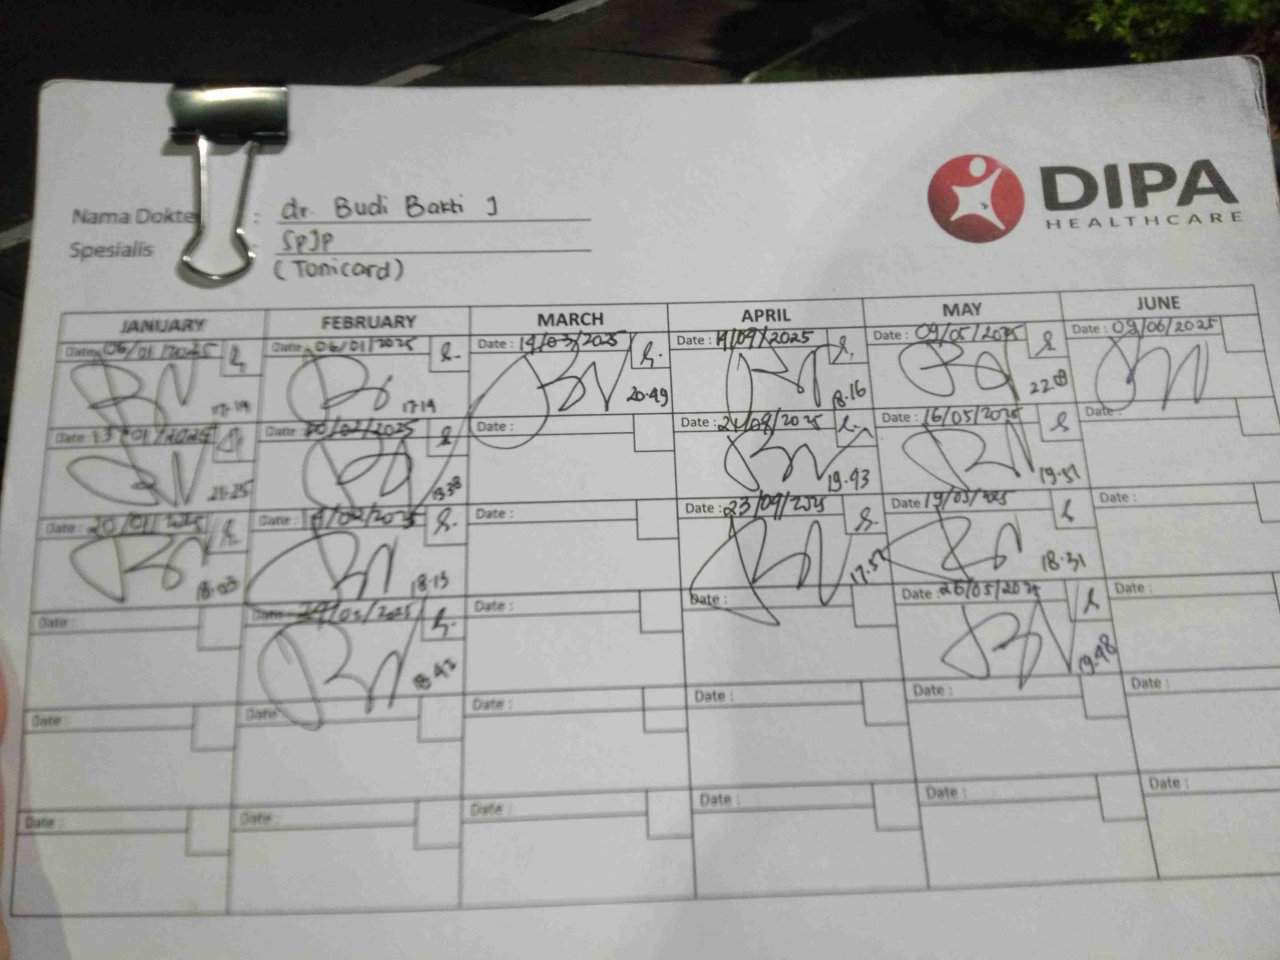 DIPA
HEALTHCARE
Nama Dokte : dr. Budi Bakti J
Spesialis : SpJP
(Tonicard)
JANUARY FEBRUARY MARCH APRIL MAY JUNE
Date: 06/01/2025 Date: 06/01/2025 Date: 14/03/2025 Date: 14/04/2025 Date: 09/05/2025 Date: 09/06/2025
17.19 17.19 20.49 18.16 22.08
Date: 13/01/2025 Date: /02/2025 Date: Date: 21/04/2025 Date: 16/05/2025 Date:
21.25 19.38 19.43 19.51
Date: 20/01/2025 Date: /02/2025 Date: Date: 23/04/2025 Date: 19/05/2025 Date:
18.03 18.13 17.57 18.31
Date: Date: Date: Date: Date: 26/05/2025 Date:
18.42 19.48
Date: Date: Date: Date: Date: Date:
Date: Date: Date: Date: Date: Date: